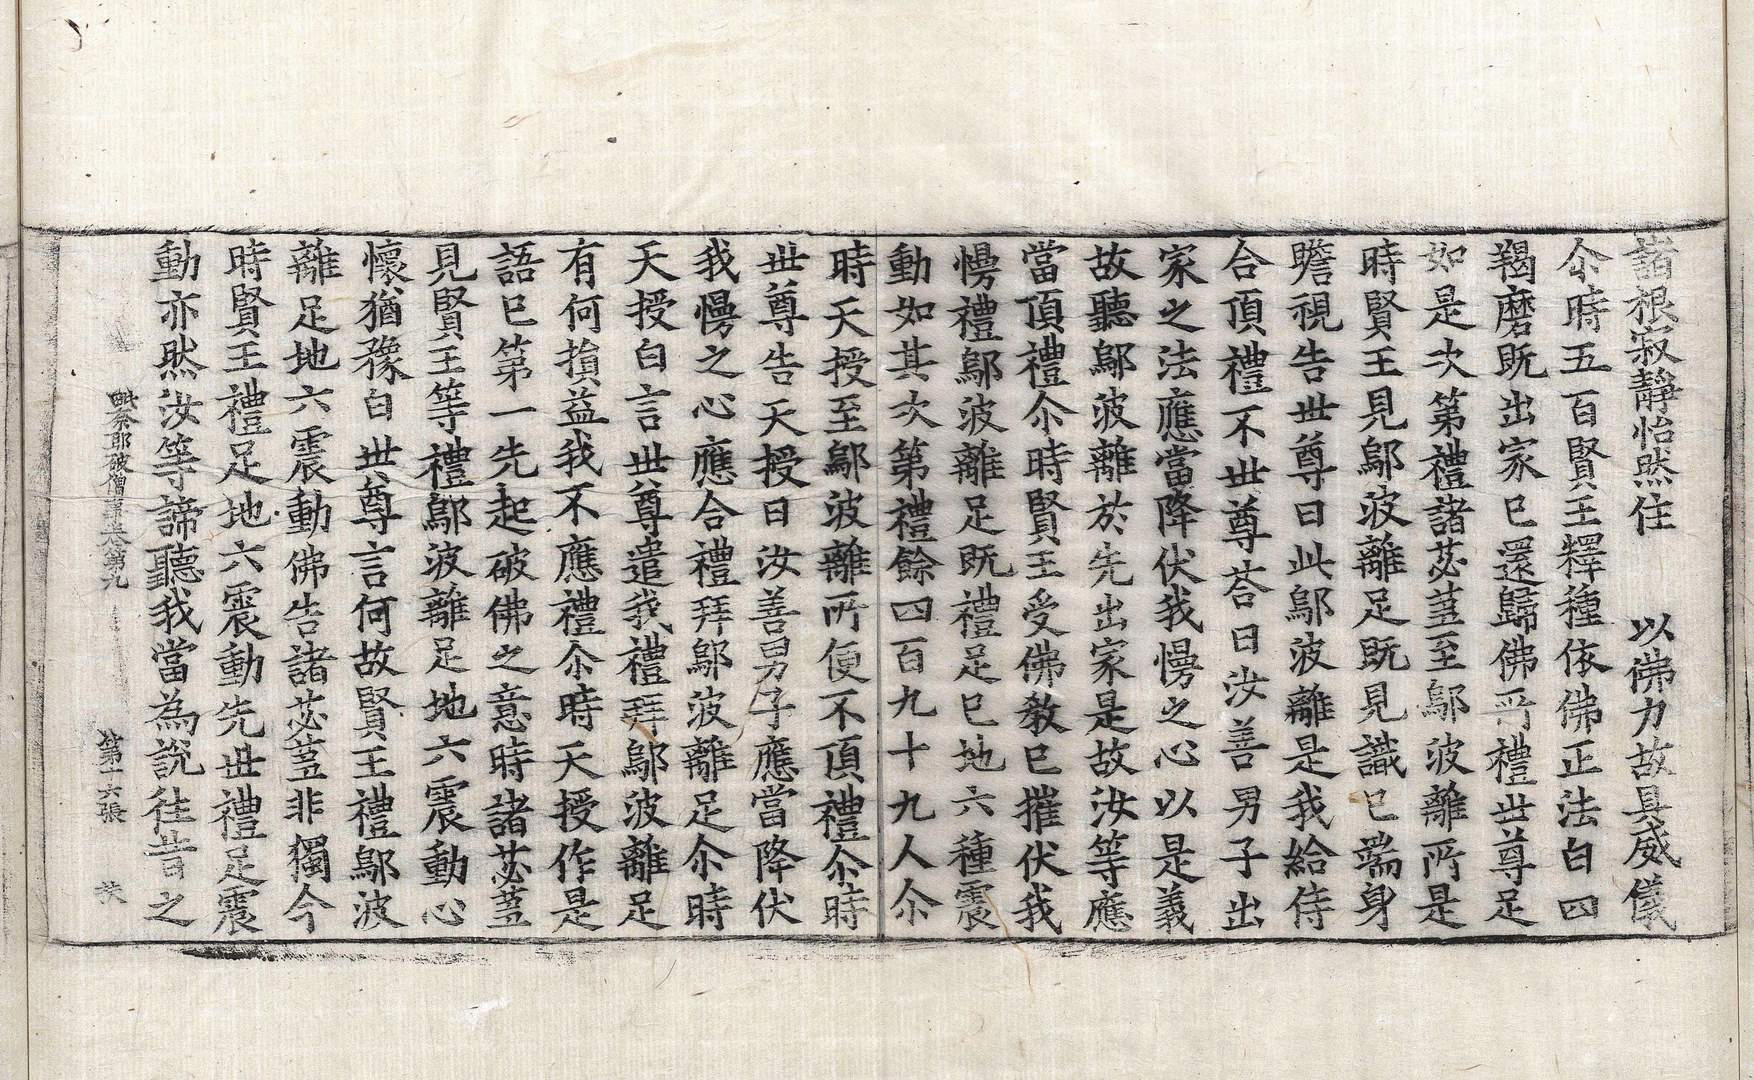 諸根寂静怡然住　以佛力故具威儀
尒時五百賢王釋種依佛正法白四
羯磨旣出家已還歸佛所禮世尊足
如是次第禮諸苾蒭至鄔波離所是
時賢王見鄔波離足旣見識已端身
瞻視告世尊曰此鄔波離是我給侍
合頂禮不世尊荅曰汝善男子出
家之法應當降伏我慢之心以是義
故聽鄔波離於先出家是故汝等應
當頂禮尒時賢王受佛教已摧伏我
慢禮鄔波離足旣禮足已地六種震
動如其次第禮餘四百九十九人尒
時天授至鄔波離所便不頂禮尒時
世尊告天授曰汝善男子應當降伏
我慢之心應合禮拜鄔波離足尒時
天授白言世尊遣我禮拜鄔波離足
有何損益我不應禮尒時天授作是
語已第一先起破佛之意時諸苾蒭
見賢王等禮鄔波離足地六震動心
懷猶豫白世尊言何故賢王禮鄔波
離足地六震動佛告諸苾蒭非獨今
時賢王禮足地六震動先世禮足震
動亦然汝等諦聽我當為說往昔之
毗奈耶破僧事卷第九　第十六張　扶